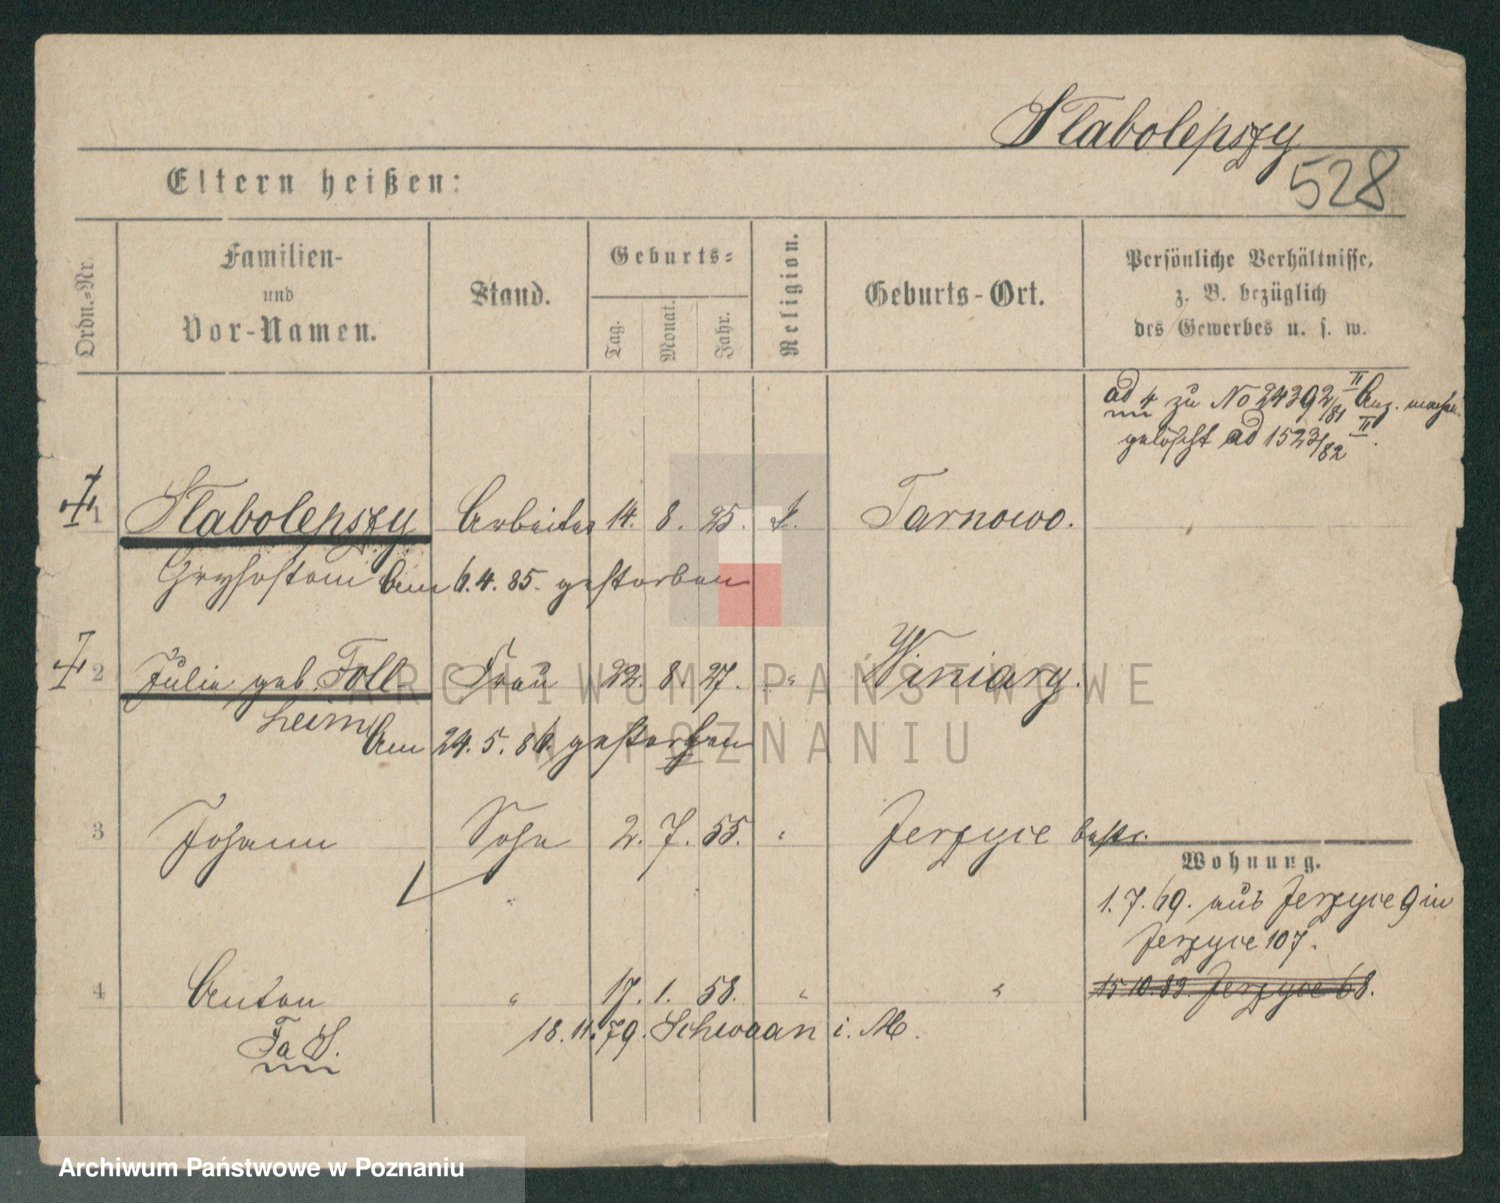 Slabolepszy
528
Eltern heißen:
Ordn.-Nr.
Familien-
und
Vor-Namen.
Stand.
Geburts-
Tag.
Monat.
Jahr.
Religion.
Geburts-Ort.
Persönliche Verhältnisse,
z. B. bezüglich
des Gewerbes u. s. w.
ad 4 zu No 24392/81 II Anz.
gelöscht ad 1523/82 II.
1 Slabolepszy Arbeiter 14. 8. 25. Tarnowo.
Chrysostom Am 6. 4. 85. gestorben
2 Julie geb. Foll Frau 22. 8. 27. " Winiary.
heim Am 24. 5. 86. gestorben
3 Johann Sohn 2. 7. 55. " Jerzyce
Wohnung.
1. 7. 69. aus Jerzyce 9 in
Jerzyce 107.
4 Anton " 17. 1. 58. " "
15 10. 83. Jerzyce 68.
18. 11. 79. Schwaan i. M.
ARCHIWUM PAŃSTWOWE
W POZNANIU
Archiwum Państwowe w Poznaniu